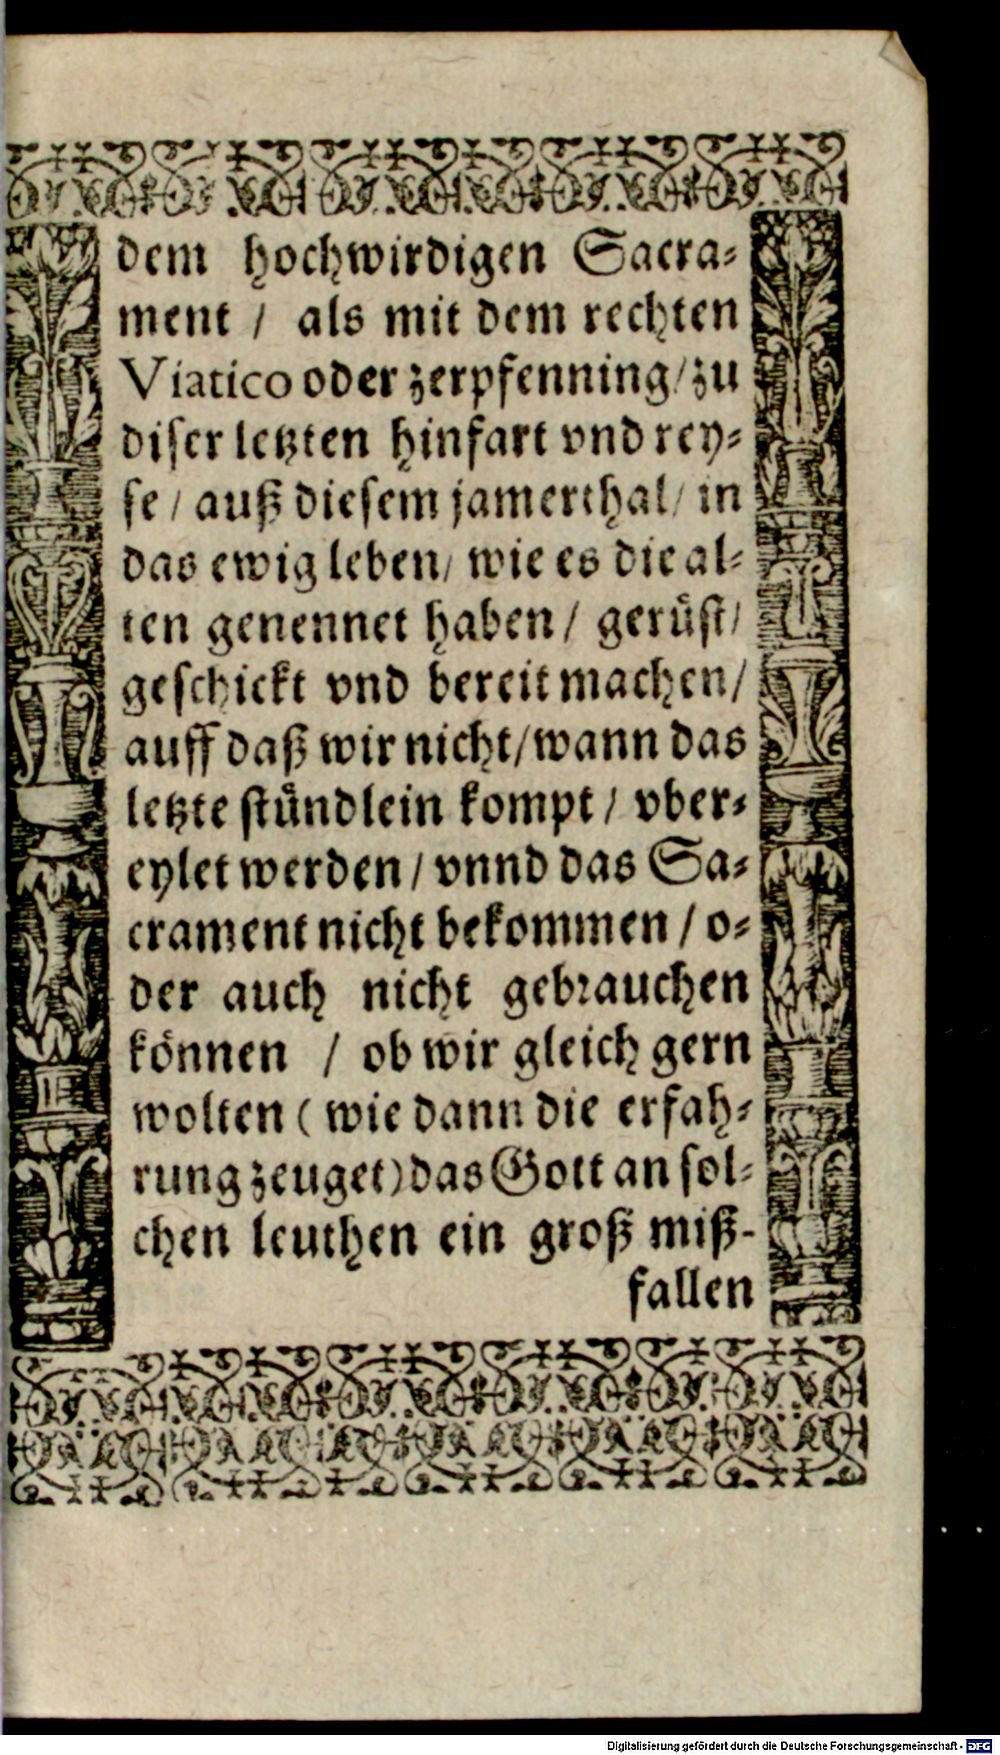 dem hochwirdigen Sacra⸗
ment / als mit dem rechten
Viatico oder zerpfenning / zu
diser letzten hinfart vnd rey⸗
se / auß diesem jamerthal / in
das ewig leben / wie es die al⸗
ten genennet haben / gerüst /
geschickt vnd bereit machen /
auff daß wir nicht / wann das
letzte stündlein kompt / vber⸗
eylet werden / vnnd das Sa⸗
crament nicht bekommen / o⸗
der auch nicht gebrauchen
können / ob wir gleich gern
wolten ( wie dann die erfah⸗
rung zeuget) das Gott an sol⸗
chen leuthen ein groß miß-
fallen
Digitalisierung gefördert durch die Deutsche Forschungsgemeinschaft - DFG